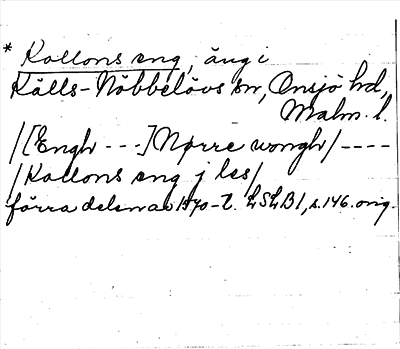 * Kollons eng, äng i
Källs-Nöbbelövs sn, Onsjö hd,
Malm. l.
/[Engh ---] Nørre wongh/ ----
/Kollons eng j les/
förra delen av 1570-t. LSLB1, s. 146. orig.